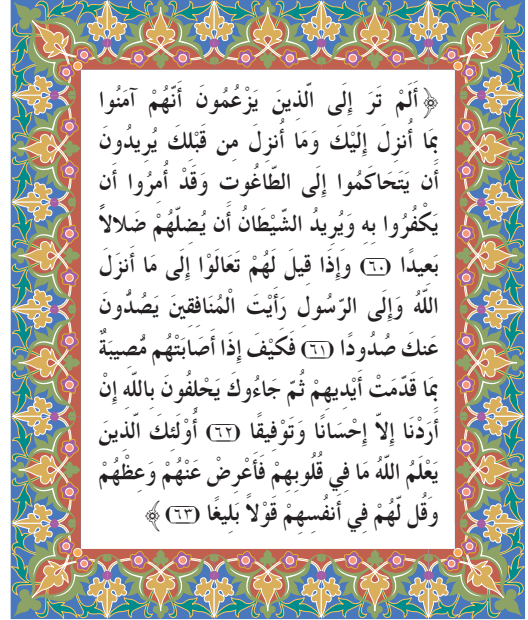 ﴿ أَلَمْ تَرَ إِلَى الَّذِينَ يَزْعُمُونَ أَنَّهُمْ آمَنُوا
بِمَا أُنزِلَ إِلَيْكَ وَمَا أُنزِلَ مِن قَبْلِكَ يُرِيدُونَ
أَن يَتَحَاكَمُوا إِلَى الطَّاغُوتِ وَقَدْ أُمِرُوا أَن
يَكْفُرُوا بِهِ وَيُرِيدُ الشَّيْطَانُ أَن يُضِلَّهُمْ ضَلالاً
بَعِيدًا (٦٠) وَإِذَا قِيلَ لَهُمْ تَعَالَوْا إِلَى مَا أَنزَلَ
اللَّهُ وَإِلَى الرَّسُولِ رَأَيْتَ الْمُنَافِقِينَ يَصُدُّونَ
عَنكَ صُدُودًا (٦١) فَكَيْفَ إِذَا أَصَابَتْهُم مُّصِيبَةٌ
بِمَا قَدَّمَتْ أَيْدِيهِمْ ثُمَّ جَاءُوكَ يَحْلِفُونَ بِاللَّهِ إِنْ
أَرَدْنَا إِلاَّ إِحْسَانًا وَتَوْفِيقًا (٦٢) أُوْلَئِكَ الَّذِينَ
يَعْلَمُ اللَّهُ مَا فِي قُلُوبِهِمْ فَأَعْرِضْ عَنْهُمْ وَعِظْهُمْ
وَقُل لَّهُمْ فِي أَنفُسِهِمْ قَوْلاً بَلِيغًا (٦٣) ﴾